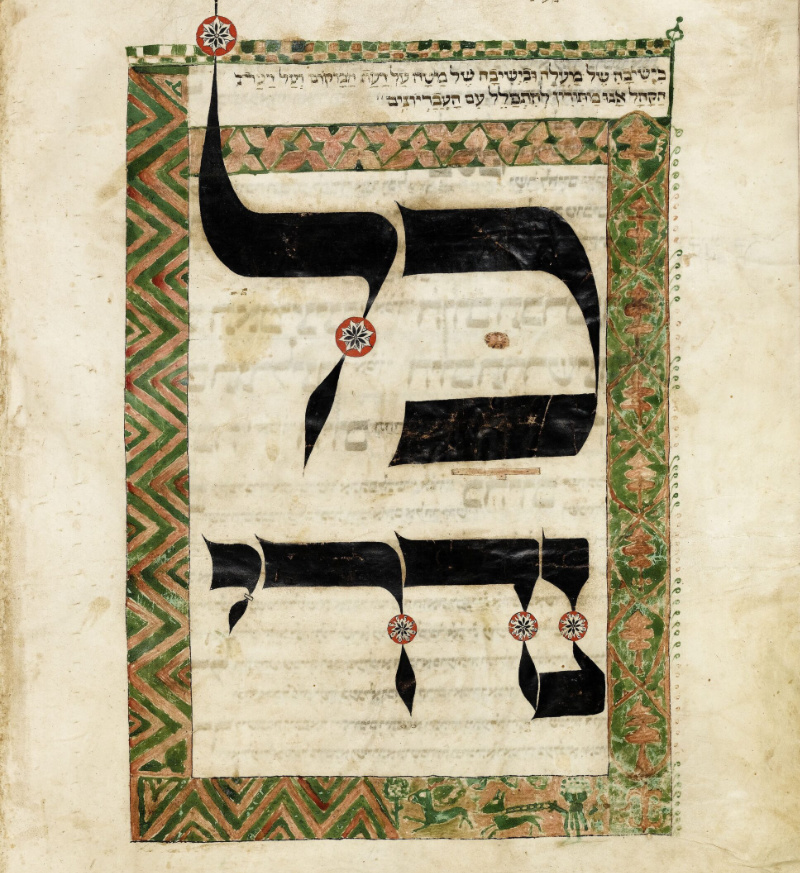 בישיבה של מעלה ובישיבה של מטה על דעת המקום ועל דעת
הקהל אנו מתירין להתפלל עם העבריונים
כל
נדרי